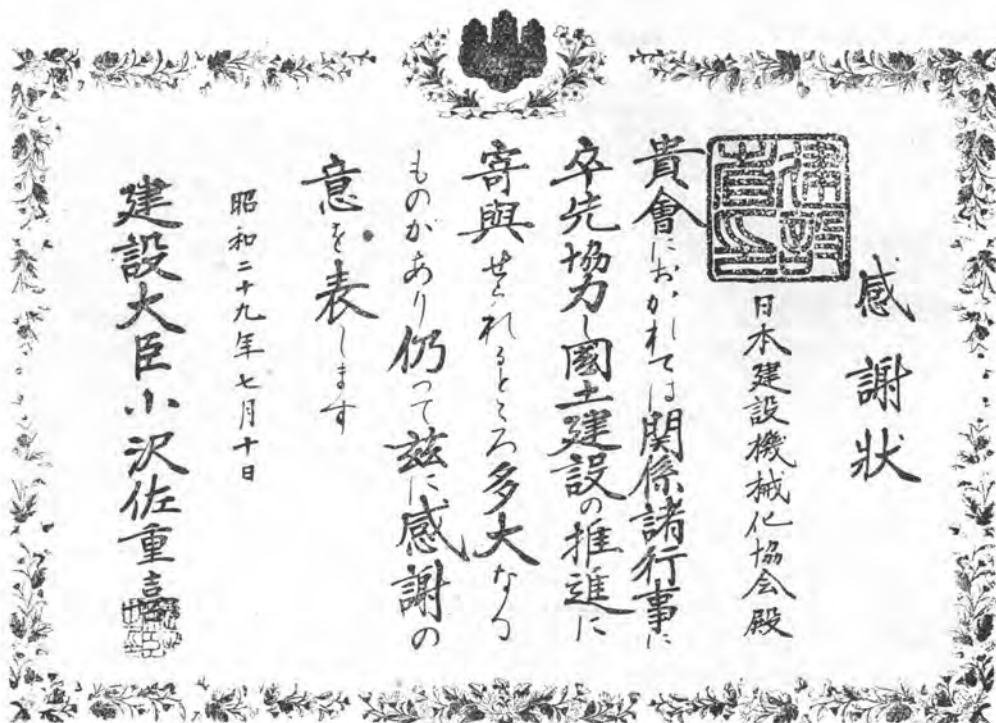 感謝状
日本建設機械化協会殿
建設省之印
貴會におかれては関係諸行事に
卒先協力し國土建設の推進に
寄與せられるところ多大なる
ものがあり仍って茲に感謝の
意を表します
昭和二十九年七月十日
建設大臣小沢佐重喜